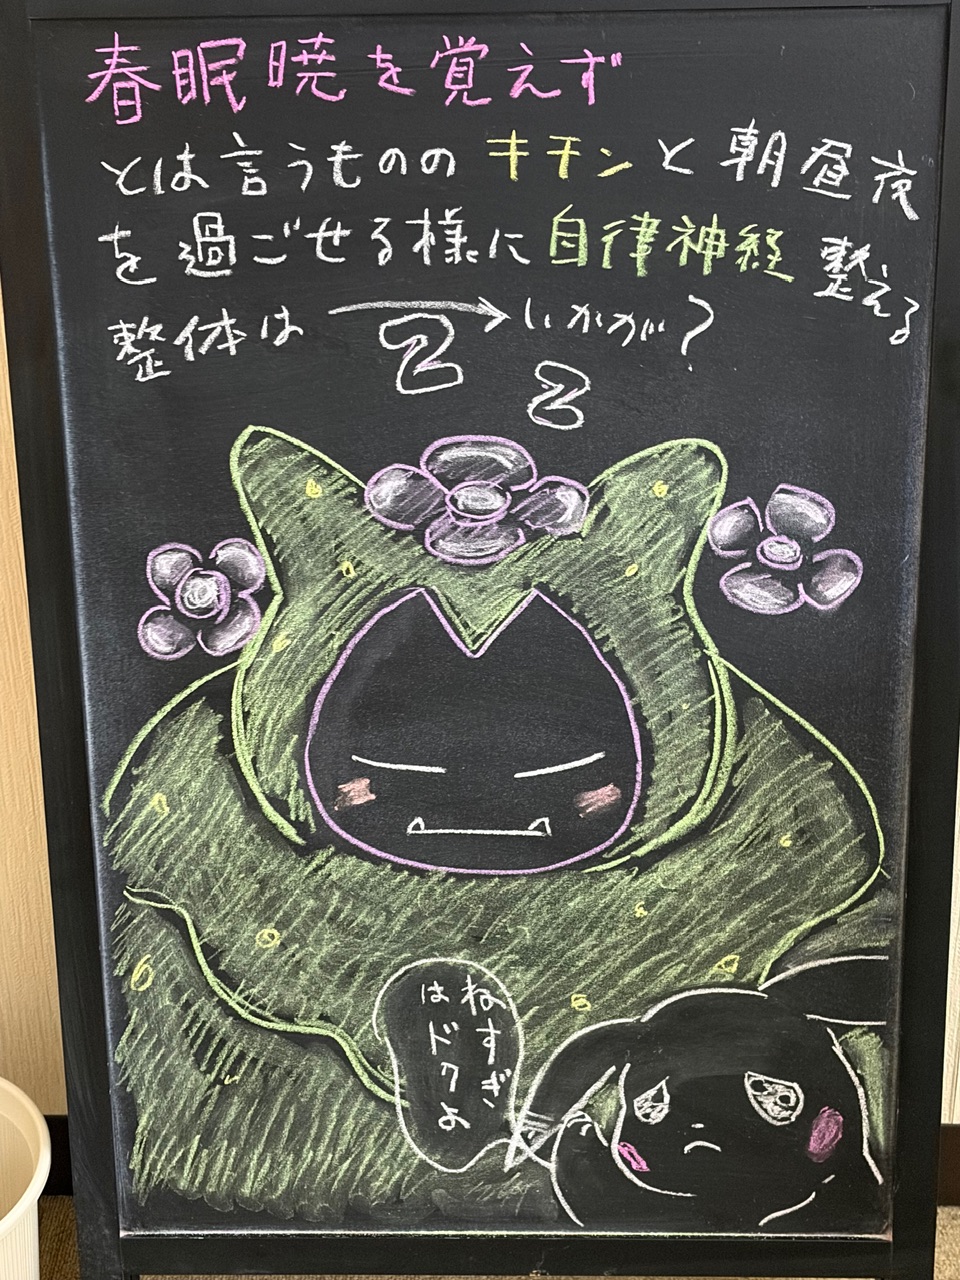 春眠暁を覚えず
とは言うものの キチンと 朝昼夜
を過ごせる様に自律神経 整える
整体は → いかが?
Z
Z
ねすぎ
はドクよ